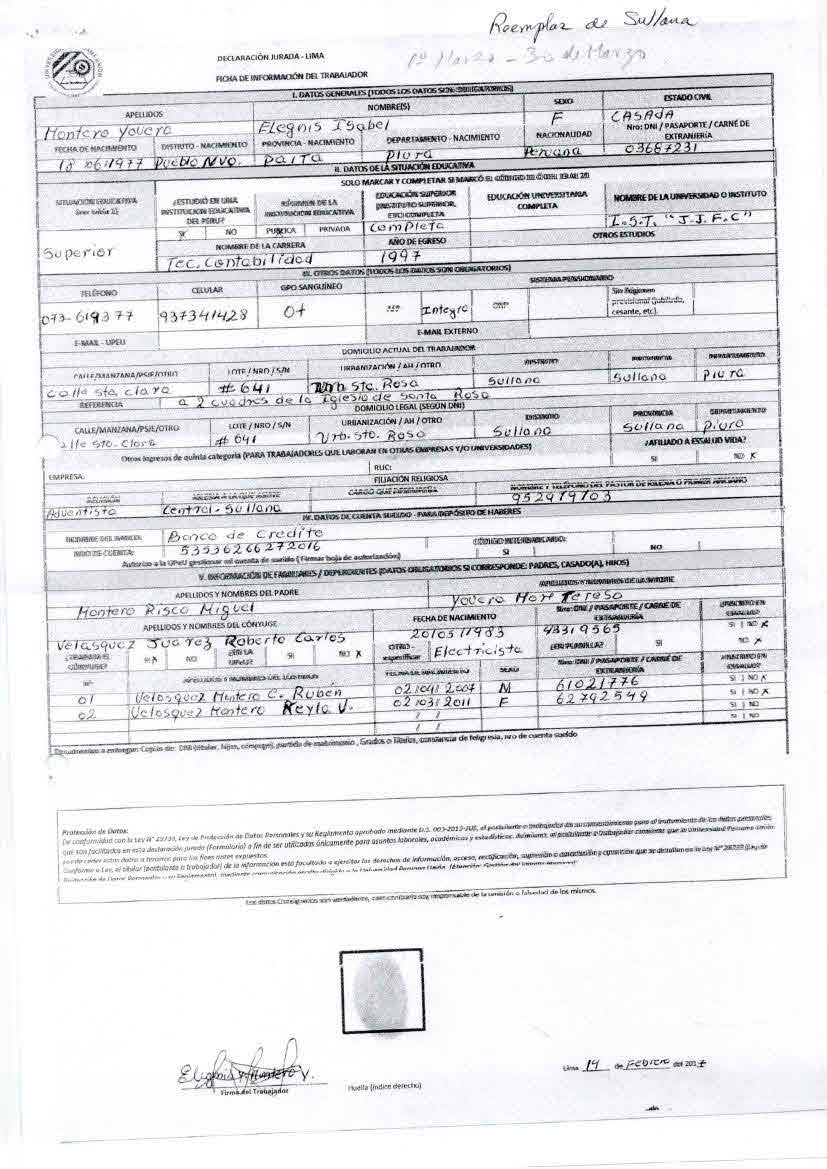 Reemplaz de Sullana
1º Marzo - 30 de Marzo
DECLARACIÓN JURADA - LIMA
FICHA DE INFORMACIÓN DEL TRABAJADOR
I. DATOS GENERALES (TODOS LOS DATOS SON OBLIGATORIOS)
APELLIDOS NOMBRE(S) SEXO ESTADO CIVIL
Montero Yovera Elegnis Isabel F CASADA
FECHA DE NACIMIENTO DISTRITO - NACIMIENTO PROVINCIA - NACIMIENTO DEPARTAMENTO - NACIMIENTO NACIONALIDAD Nro: DNI / PASAPORTE / CARNÉ DE EXTRANJERÍA
18/06/1977 Pueblo NVO. Paita Piura Peruana 03687231
II. DATOS DE LA SITUACIÓN EDUCATIVA
SITUACIÓN EDUCATIVA ¿ESTUDIÓ EN UNA INSTITUCIÓN EDUCATIVA DEL PERU? RÉGIMEN DE LA INSTITUCIÓN EDUCATIVA EDUCACIÓN SUPERIOR EDUCACIÓN UNIVERSITARIA COMPLETA NOMBRE DE LA UNIVERSIDAD O INSTITUTO
SI NO PUBLICA PRIVADA Completa I.S.T. "J.J.F.C"
Superior NOMBRE DE LA CARRERA AÑO DE EGRESO OTROS ESTUDIOS
Tec. Contabilidad 1997
III. OTROS DATOS (TODOS LOS DATOS SON OBLIGATORIOS)
TELÉFONO CELULAR GPO SANGUÍNEO SISTEMA PENSIONARIO
073-619377 937341428 O+ AFP Integra ONP Sin Régimen previsional (jubilado, cesante, etc)
E-MAIL - UPEU E-MAIL EXTERNO
DOMICILIO ACTUAL DEL TRABAJADOR
CALLE/MANZANA/PSJE/OTRO LOTE / NRO / S/N URBANIZACIÓN / AH / OTRO DISTRITO PROVINCIA DEPARTAMENTO
Calle Sta. Clara # 641 Urb Sta. Rosa Sullana Sullana Piura
REFERENCIA a 2 cuadras de la Iglesia de Santa Rosa
DOMICILIO LEGAL (SEGÚN DNI)
CALLE/MANZANA/PSJE/OTRO LOTE / NRO / S/N URBANIZACIÓN / AH / OTRO DISTRITO PROVINCIA DEPARTAMENTO
alle Sta. Clara # 641 Urb. Sta. Rosa Sullana Sullana Piura
Otros Ingresos de quinta categoría (PARA TRABAJADORES QUE LABORAN EN OTRAS EMPRESAS Y/O UNIVERSIDADES) ¿AFILIADO A ESSALUD VIDA?
SI NO X
EMPRESA: RUC:
FILIACIÓN RELIGIOSA
RELIGIÓN IGLESIA A LA QUE ASISTE NOMBRE Y TELÉFONO DEL PASTOR DE IGLESIA O PRIMER ANCIANO
Adventista Central - Sullana 952979703
IV. DATOS DE CUENTA SUELDO - PARA DEPÓSITO DE HABERES
NOMBRE DEL BANCO: Banco de Credito CÓDIGO INTERBANCARIO:
NRO DE CUENTA: 53536266272016 SI NO
Autorizo a la UPeU gestionar mi cuenta de sueldo (Firmar hoja de autorización)
V. INFORMACIÓN DE FAMILIARES / DEPENDIENTES (DATOS OBLIGATORIOS SI CORRESPONDE: PADRES, CASADO(A), HIJOS)
APELLIDOS Y NOMBRES DEL PADRE APELLIDOS Y NOMBRES DE LA MADRE
Montero Risco Miguel Yovera More Teresa
APELLIDOS Y NOMBRES DEL CÓNYUGE FECHA DE NACIMIENTO Nro: DNI / PASAPORTE / CARNÉ DE EXTRANJERÍA
Velasquez Juarez Roberto Carlos 20/05/1983 43319565 SI NO X
¿TRABAJA EL CÓNYUGE? SI X NO ¿EN LA UPeU? SI NO X OTRO - especificar Electricista ¿EN PLANILLA? SI NO X
Nº APELLIDOS Y NOMBRES DE LOS HIJOS FECHA DE NACIMIENTO SEXO Nro: DNI / PASAPORTE / CARNÉ DE EXTRANJERÍA
01 Velasquez Montero C. Ruben 02/04/2007 M 61021776 SI NO X
02 Velasquez Montero Keyla V. 02/03/2011 F 62792549 SI NO X
/ / SI NO
/ / SI NO
Documentos a entregar: Copias de: DNI (titular, hijos, cónyuge), partida de matrimonio, Grados o Títulos, constancia de feligresía, nro de cuenta sueldo
Protección de Datos:
De conformidad con la Ley Nº 29733, Ley de Protección de Datos Personales y su Reglamento aprobado mediante D.S. 003-2013-JUS, el postulante o trabajador da su consentimiento para el tratamiento de los datos personales
que son facilitados en esta declaración jurada (Formulario) a fin de ser utilizados únicamente para asuntos laborales, académicos y estadísticos. Asimismo, el postulante o trabajador consiente que la Universidad Peruana Unión
pueda ceder estos datos a terceros para los fines antes expuestos.
Conforme a Ley, el titular (postulante o trabajador) de la información está facultado a ejercitar los derechos de información, acceso, rectificación, supresión o cancelación y oposición que se detallan en la Ley Nº 29733 (Ley de
Los datos Consignados son verdaderos, caso contrario soy responsable de la omisión o falsedad de los mismos.
Lima 14 de Febrero del 2017
Firma del Trabajador Huella (índice derecho)